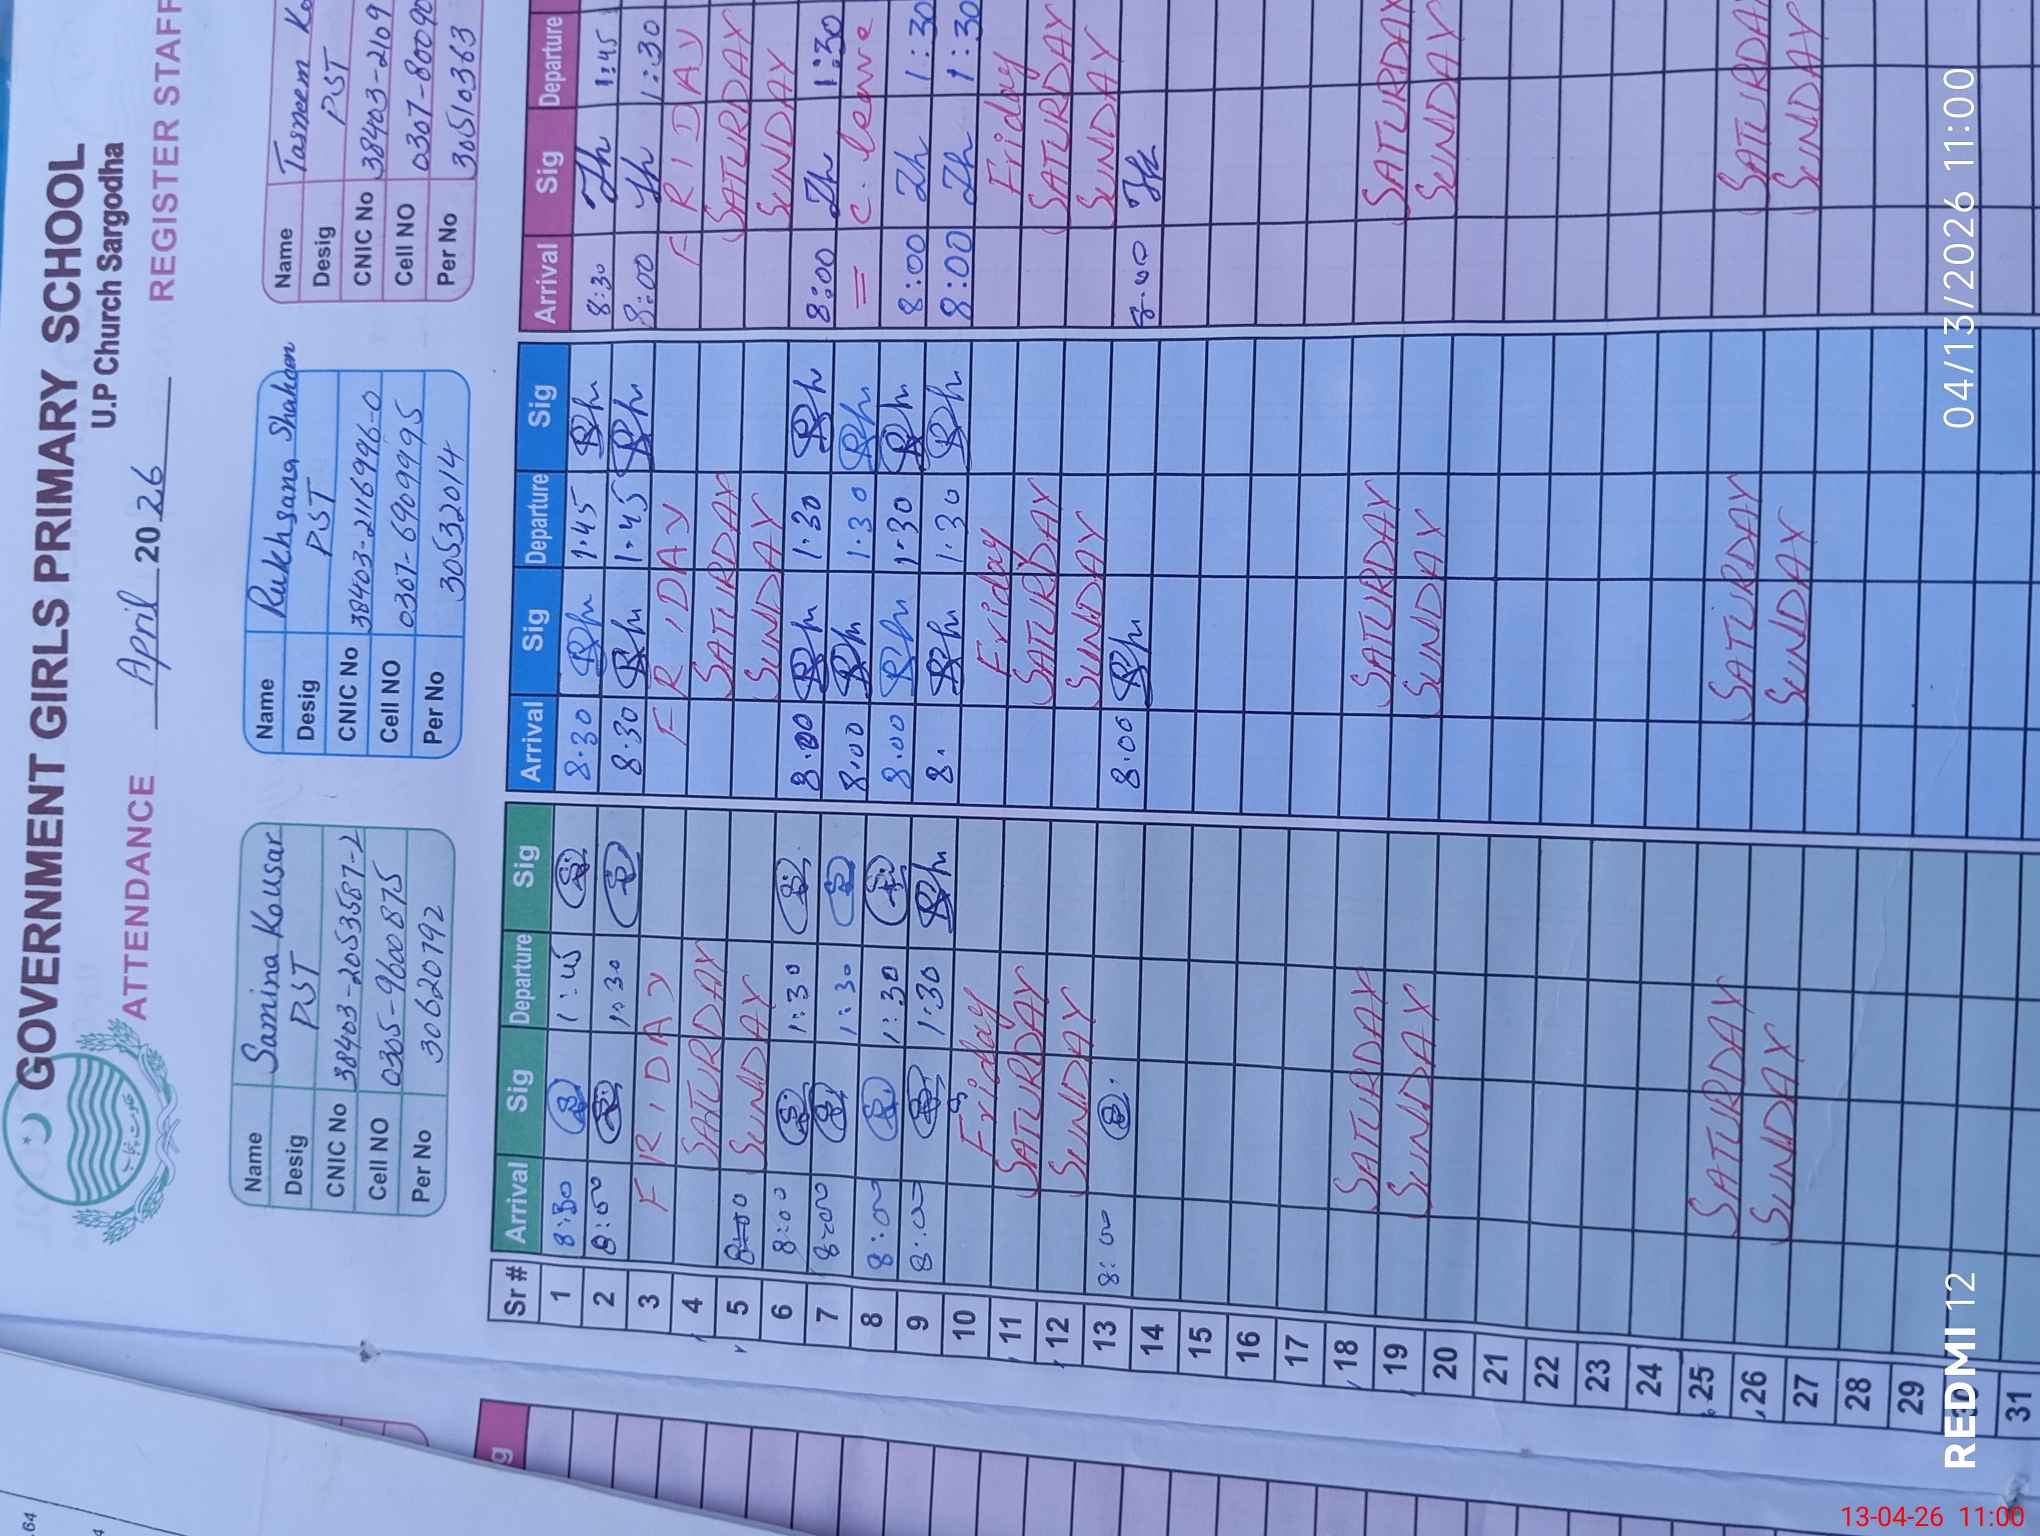 GOVERNMENT GIRLS PRIMARY SCHOOL
U.P Church Sargodha
ATTENDANCE April 2026 REGISTER STAFF
Name Samina Kousar
Desig PST
CNIC No 38403-2053587-2
Cell NO 0305-9600875
Per No 30620792
Name Rukhsana Shaheen
Desig PST
CNIC No 38403-2116996-0
Cell NO 0307-6909995
Per No 30532014
Name Tasneem
Desig PST
CNIC No 38403-2109
Cell NO 0307-80090
Per No 30510363
Sr # Arrival Sig Departure Sig Arrival Sig Departure Sig Arrival Sig Departure
1 8:30 1:45 8.30 1.45 8:30 1:45
2 8:00 1:30 8.30 1.45 8:00 1:30
3 FRIDAY FRIDAY FRIDAY
4 SATURDAY SATURDAY SATURDAY
5 8:00 SUNDAY SUNDAY SUNDAY
6 8:00 1:30 8.00 1.30 8:00 1:30
7 8:00 1:30 8.00 1.30 = C. leave
8 8:00 1:30 8.00 1.30 8:00 1:30
9 8:00 1:30 8. 1.30 8:00 1:30
10 Friday Friday Friday
11 SATURDAY SATURDAY SATURDAY
12 SUNDAY SUNDAY SUNDAY
13 8:00 8.00 8.00
14
15
16
17
18 SATURDAY SATURDAY SATURDAY
19 SUNDAY SUNDAY SUNDAY
20
21
22
23
24
25 SATURDAY SATURDAY SATURDAY
26 SUNDAY SUNDAY SUNDAY
27
28
29
31
REDMI 12
04/13/2026 11:00
13-04-26 11:00